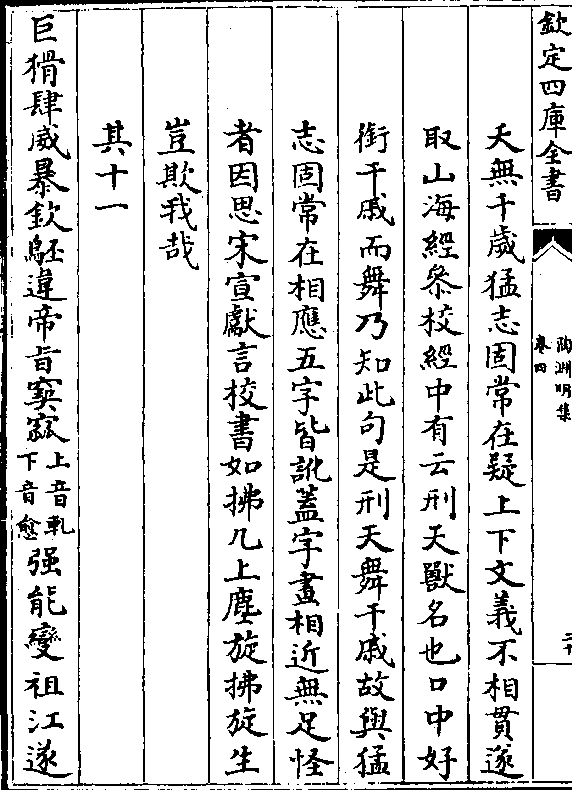 欽定四庫全書
陶淵明集
卷四
夭無千歲猛志固常在疑上下文義不相貫遂
取山海經叅校經中有云刑天獸名也口中好
銜干戚而舞乃知此句是刑天舞干戚故與猛
志固常在相應五字皆訛蓋字畫相近無足怪
者因思宋宣獻言校書如拂几上塵旋拂旋生
豈欺我哉
其十一
巨猾肆威暴欽䲹違帝旨窫窳上音軋下音愈强能變祖江遂